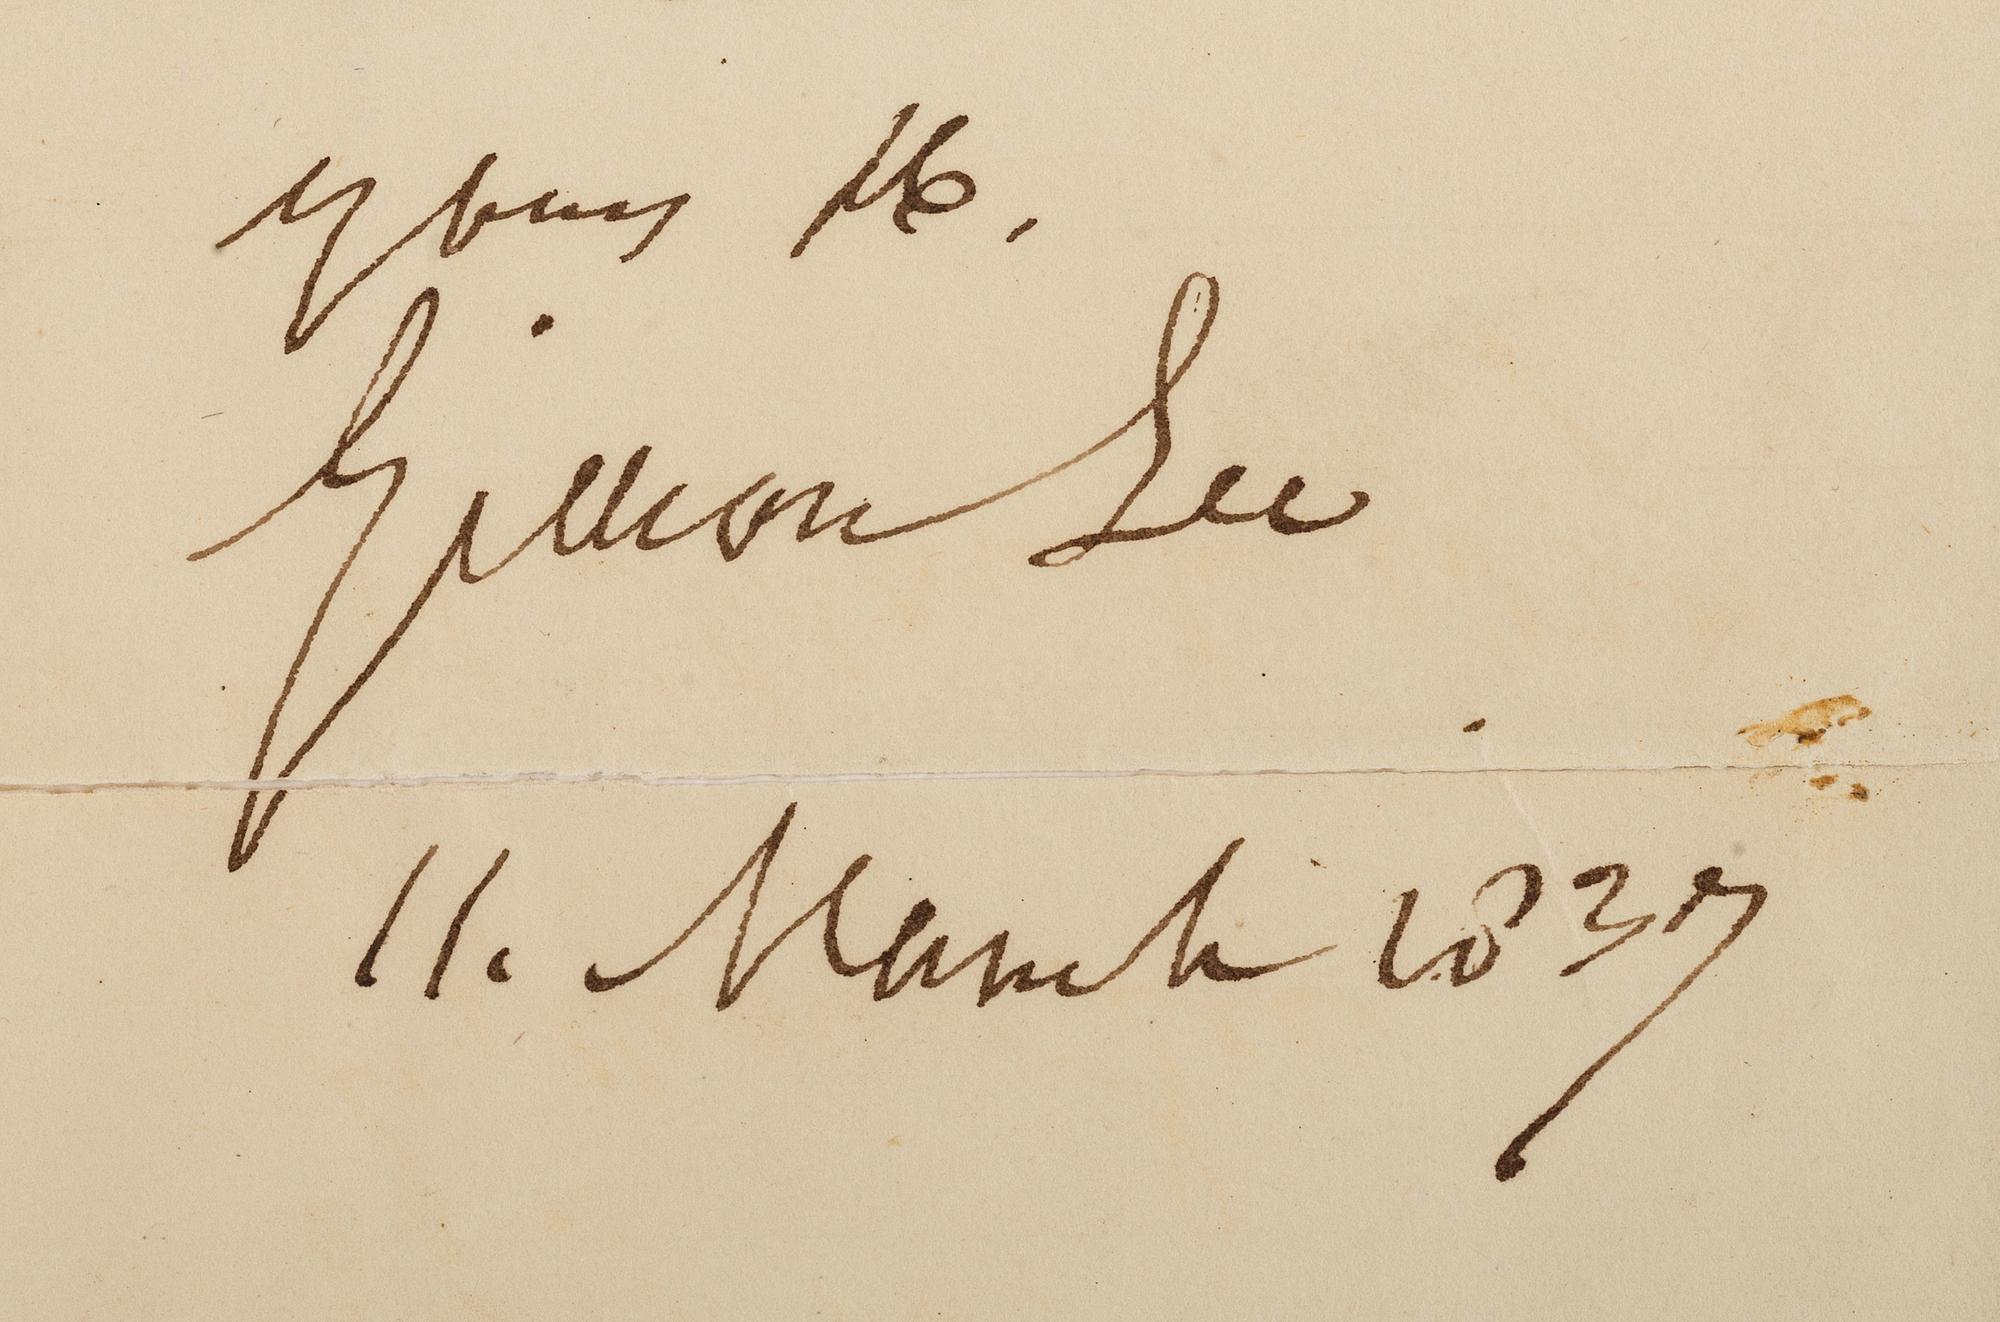 yours
Gillion Lee
11. March 1837